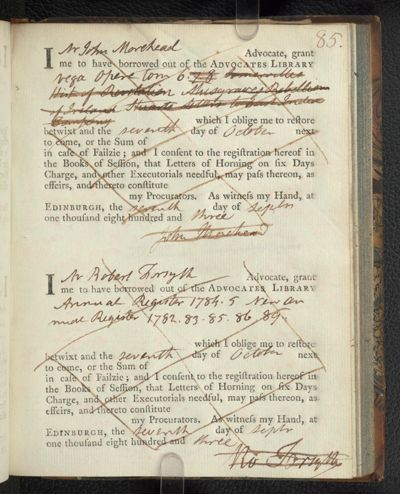 85.
I Mr John Morehead Advocate, grant
me to have borrowed out of the ADVOCATES LIBRARY
vega Opere tom 6. 7. 8
Hist of Revolution Musgraves Rebellion
of Ireland
Company which I oblige me to restore
betwixt and the seventh day of October next
to come, or the Sum of
in case of Failzie; and I consent to the registration hereof in
the Books of Session, that Letters of Horning on six Days
Charge, and other Executorials needful, may pass thereon, as
effeirs, and thereto constitute
my Procurators. As witness my Hand, at
EDINBURGH, the seventh day of Septr
one thousand eight hundred and three
John Morehead
I Mr Robert Forsyth Advocate, grant
me to have borrowed out of the ADVOCATES LIBRARY
Annual Register 1784. 5 New an
nual Register 1782. 83. 85. 86. 89.
which I oblige me to restore
betwixt and the seventh day of October next
to come, or the Sum of
in case of Failzie; and I consent to the registration hereof in
the Books of Session, that Letters of Horning on six Days
Charge, and other Executorials needful, may pass thereon, as
effeirs, and thereto constitute
my Procurators. As witness my Hand, at
EDINBURGH, the seventh day of Septr
one thousand eight hundred and three
Ro Forsyth